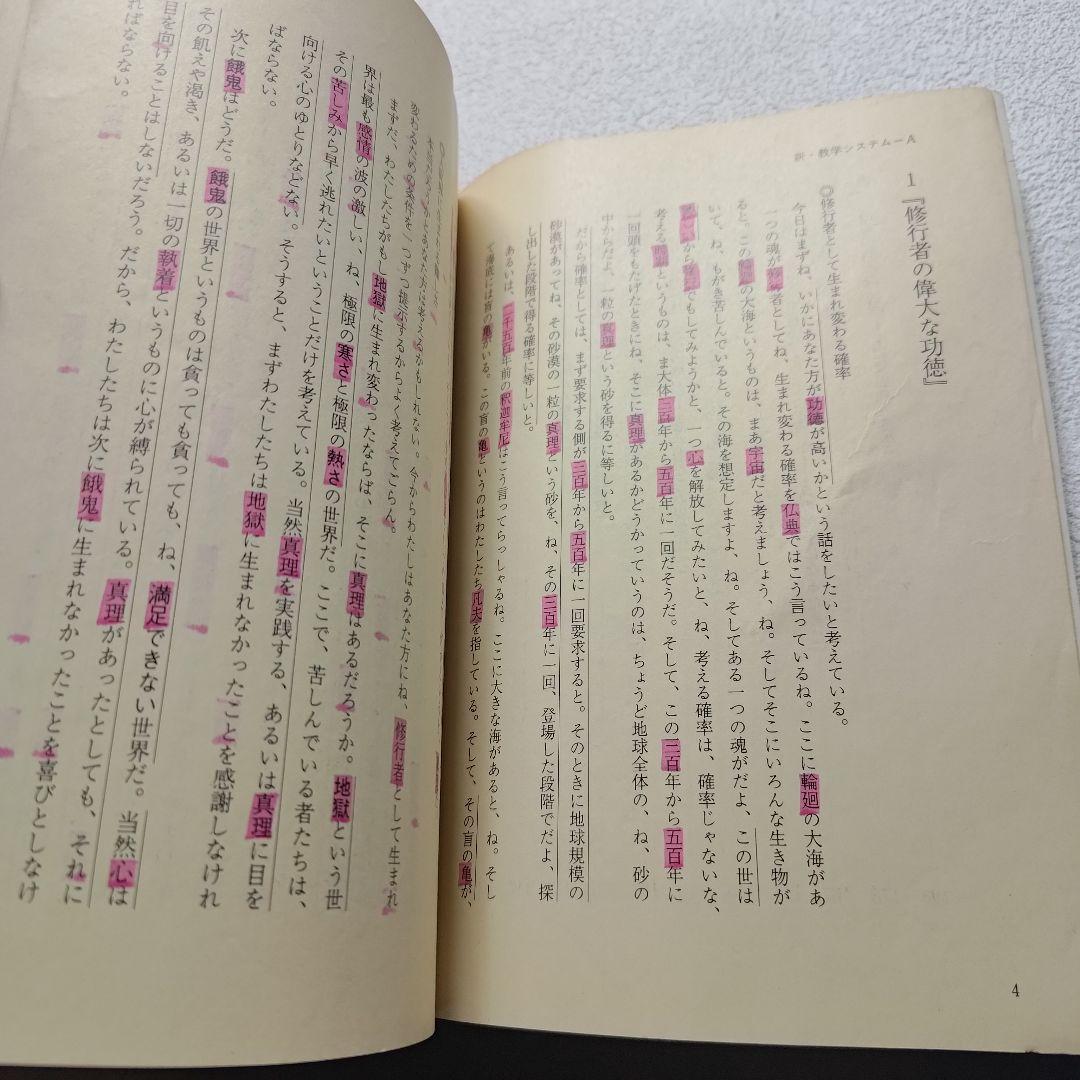 新・教学システムーA
1『修行者の偉大な功徳』
◎修行者として生まれ変わる確率
今日はまずね、いかにあなた方が功徳が高いかという話をしたいと考えている。
一つの魂が修行者としてね、生まれ変わる確率を仏典ではこう言っているね。ここに輪廻の大海があ
ると。この輪廻の大海というものは、まあ宇宙だと考えましょう、ね。そしてそこにいろんな生き物が
いて、ね、もがき苦しんでると。その海を想定しますよ、ね。そしてある一つの魂がだよ、この世は
から でもしてみようかと、一つ心を解放してみたいと、ね、考える確率は、確率じゃないな、
考える というものは、ま大体三百年から五百年に一回だそうだ。そして、この三百年から五百年に
一回頭をもたげたときにね、そこに真理があるかどうかっていうのは、ちょうど地球全体の、ね、砂の
中からだよ、一粒の真理という砂を得るに等しいと。
だから確率としては、まず要求する側が三百年から五百年に一回要求すると。そのときに地球規模の
砂漠があってね、その砂漠の一粒の真理という砂を、ね、その三百年に一回、登場した段階でだよ、探
し出した段階で得る確率に等しいと。
あるいは、二千五百年前の釈迦牟尼はこう言ってらっしゃるね。ここに大きな海があると、ね。そし
て海底には盲の亀がいる。この盲の亀というのはわたしたち凡夫を指している。そして、その盲の亀が、
4
かとあなた方は考えるかもしれない。今からわたしはあなた方にね、修行者として生まれ
変わるための条件を一つずつ提示するからよく考えてごらん。
まずだ、わたしたちがもし地獄に生まれ変わったならば、そこに真理はあるだろうか。地獄という世
界は最も感情の波の激しい、ね、極限の寒さと極限の熱さの世界だ。ここで、苦しんでいる者たちは、
その苦しみから早く逃れたいということだけを考えている。当然真理を実践する、あるいは真理に目を
向ける心のゆとりなどない。そうすると、まずわたしたちは地獄に生まれなかったことを感謝しなけれ
ばならない。
次に餓鬼はどうだ。餓鬼の世界というものは貪っても貪っても、ね、満足できない世界だ。当然心は
その飢えや渇き、あるいは一切の執着というものに心が縛られている。真理があったとしても、それに
目を向けることはしないだろう。だから、わたしたちは次に餓鬼に生まれなかったことを喜びとしなけ
ればならない。